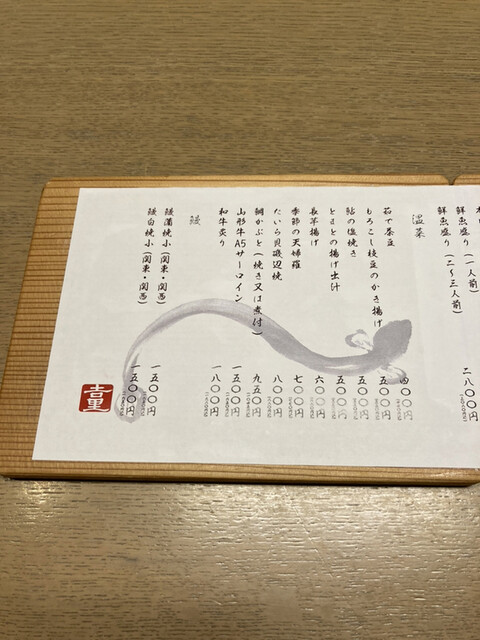 鮮魚盛り(一人前)
鮮魚盛り(二～三人前) 二八〇〇円
温菜
茹で茶豆 四〇〇円
もろこし枝豆のかき揚げ 五〇〇円
鮎の塩焼き 五〇〇円
とまとの揚げ出汁 五〇〇円
長芋揚げ 六〇〇円
季節の天婦羅 七〇〇円
たいら貝磯辺焼 八〇〇円
鯛かぶと(焼き又は煮付) 九五〇円
山形牛A5サーロイン 一五〇〇円
和牛炙り 一八〇〇円
鰻
鰻蒲焼小(関東・関西) 一五〇〇円
鰻白焼小(関東・関西) 一五〇〇円